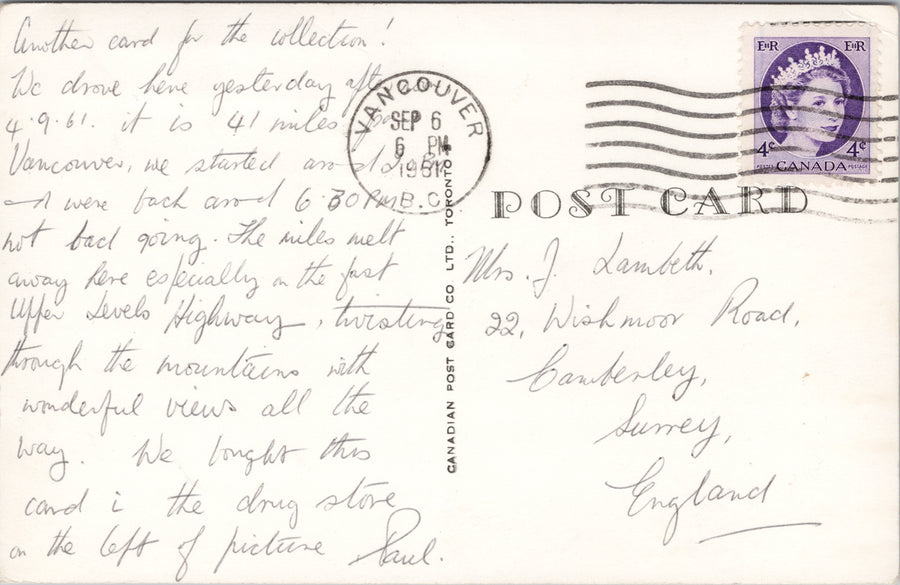 Another card for the collection!
We drove here yesterday aft
4.9.61. it is 41 miles
Vancouver, we started around
and were back around 6.30PM
not bad going. The miles melt
away here especially on the fast
Upper Levels Highway, twisting
through the mountains with
wonderful views all the
way. We bought this
card i the drug store
on the left of picture Paul.
VANCOUVER
SEP 6
6 PM
1961
B.C.
CANADIAN POST CARD CO LTD., TORONTO
EIIR EIIR
4¢ 4¢
POSTES CANADA POSTAGE
POST CARD
Mrs. J. Lambeth.
22, Wishmoor Road,
Camberley,
Surrey,
England